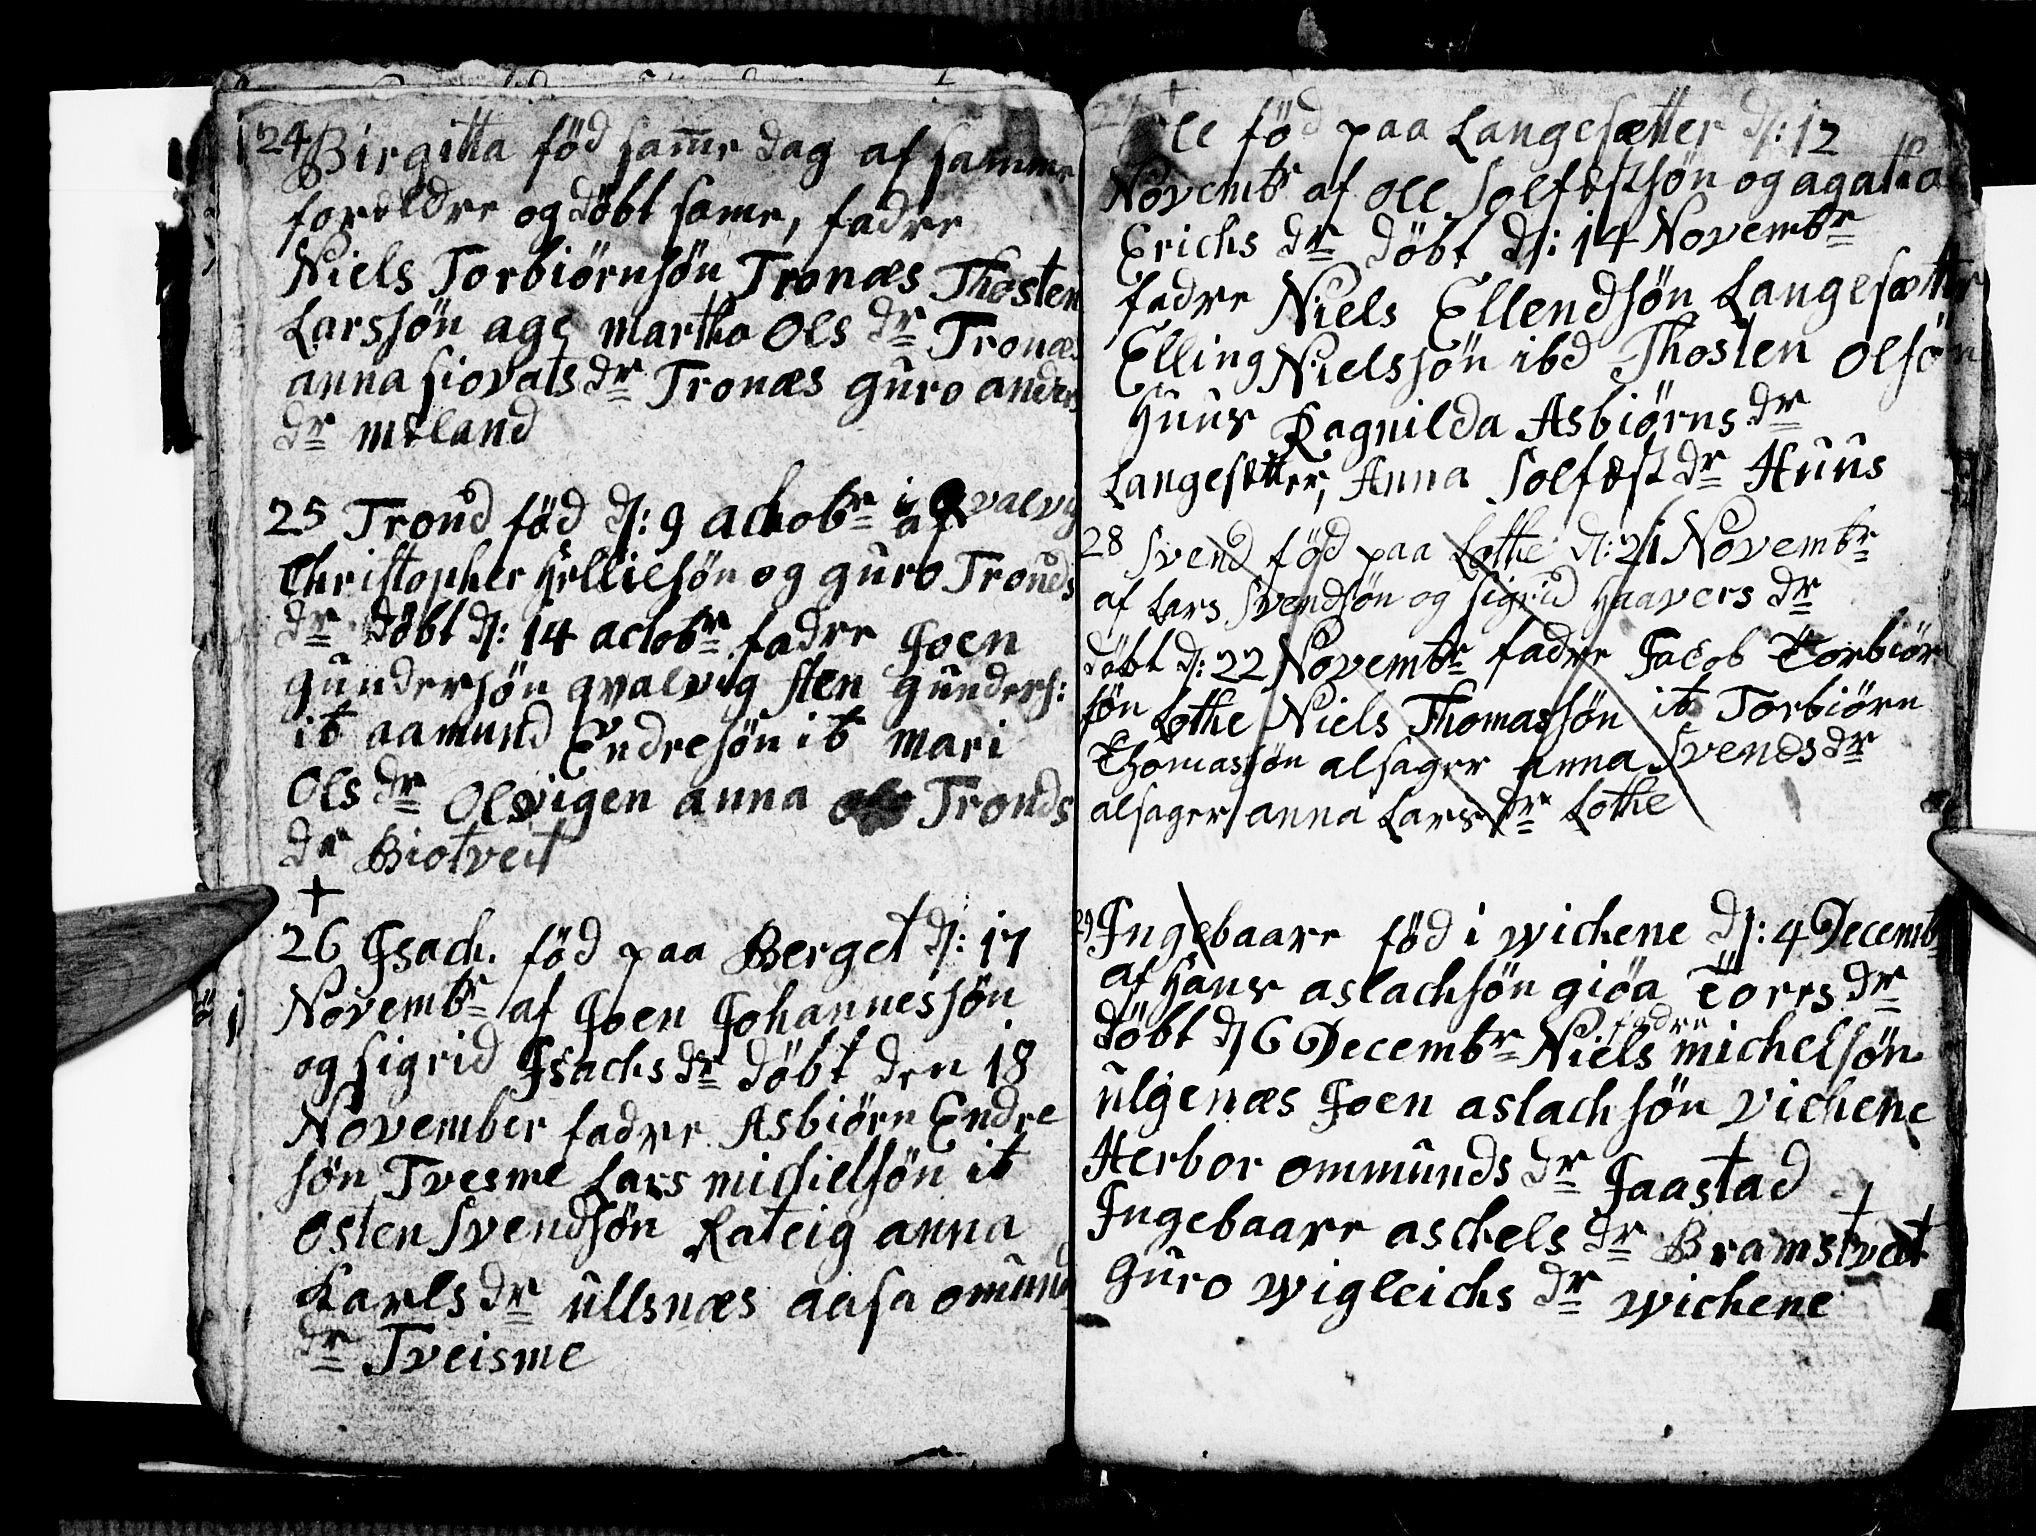 24 Birgitta föd samme dag af samme
foreldre og döbt same, fadre
Niels Torbiørnsön Tronæs Thosten
Larssön age martha Ols dr Tronæs
anna siovats dr Tronæs guro anders
dr mæland
25 Trond föd d: 9 actobr i Qvalvig
af
Christopher Hælliesön og guro Tronds
dr döbt d: 14 actobr fadre Joen
gundersön qvalvig sten gunders:
it aamund Endresön it mari
Ols dr Olsvigen anna Tronds
dr Biotveit
+
26 Isach. föd paa Berget d: 17
Novembr af Joen Johannessön
og sigrid Isachs dr döbt den 18
November fadre Asbiörn Endre
sön Tvesme Lars michielsön it
Osten Svendsön Rateig anna
Karls dr ullsnæs aasa omund
dr Tveisme
Ole föd paa Langesætter d: 12
Novembr af Ole Solfæstsön og agatha
Erichs dr döbt d: 14 Novembr
fadre Niels Ellendsön Langesætter
Elling Nielssön ibd Thosten Olsön
Huus Ragnilda Asbiörns dr
Langesætter, Anna Solfæst dr Huus
28 Svend föd paa Lothe d: 21 Novembr
af Lars Svendsön og sigrid Haavers dr
döbt d: 22 Novembr fadre Jacob Torbiör
sön Lothe Niels Thomassön it Torbiörn
Thomassön alsager anna Svends dr
alsager anna Lars dr Lothe
29 Ingebaare föd i wichene d: 4 Decemb
af Hans aslachsön giöa Torrs dr
fadre
döbt d 6 Decembr Niels michelsön
ulgenæs Joen aslachsön vichene
Herbor ommunds dr Jaastad
Ingebaare aschels dr Bramstvæt
guro wigleichs dr wichene